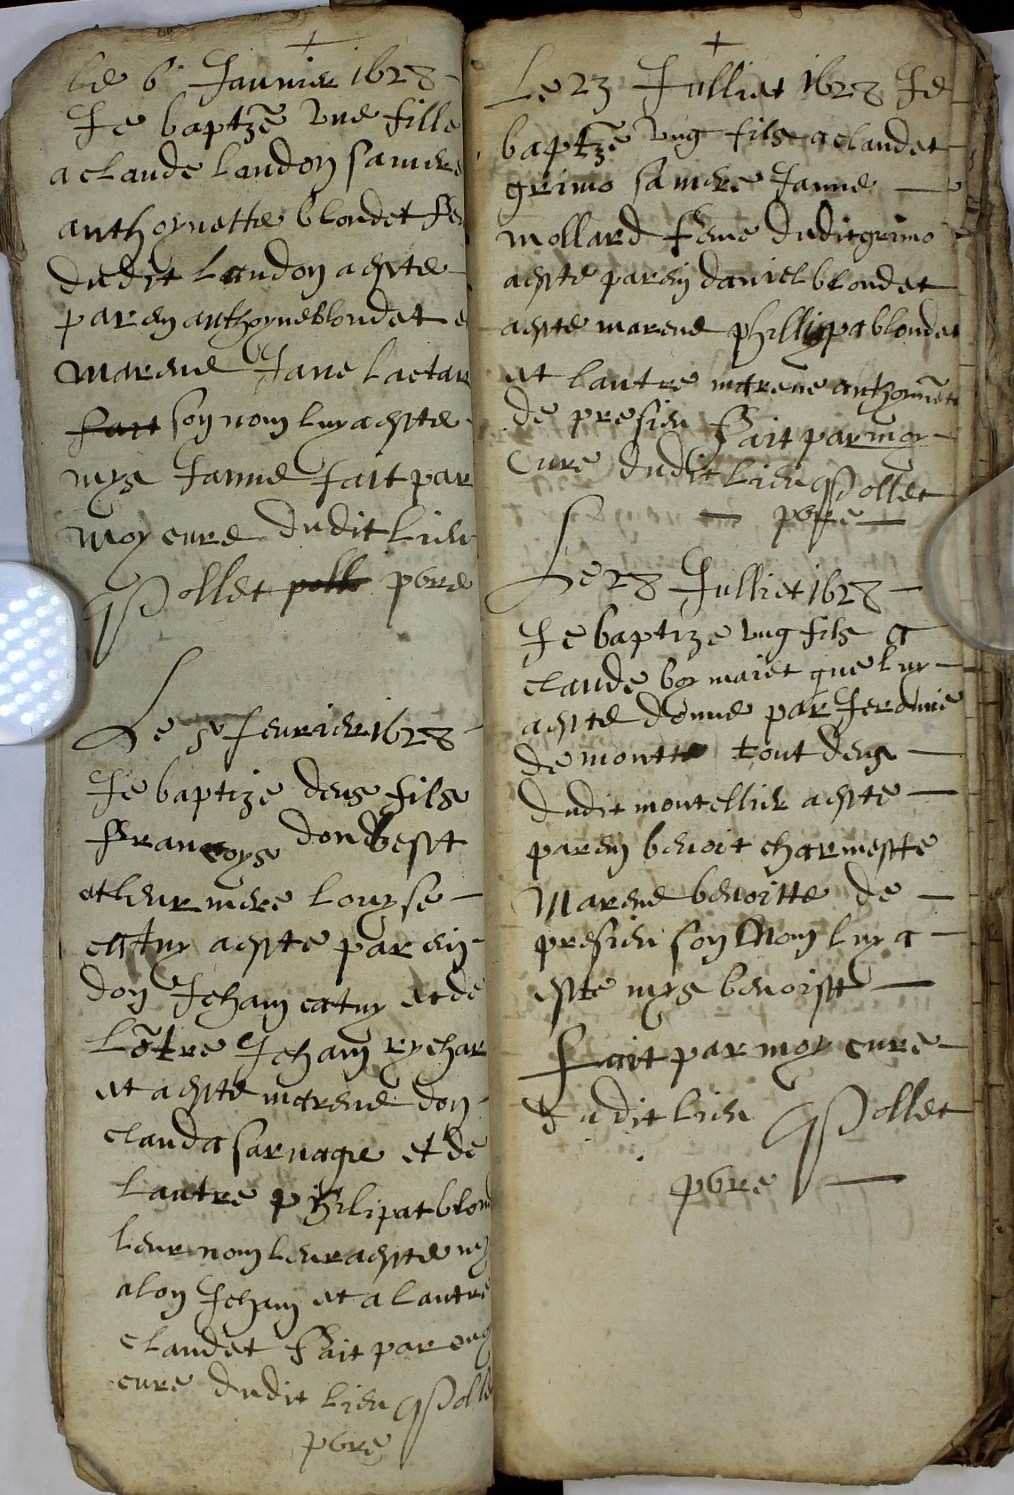 Le 6 Janvier 1628
Je baptze une fille
a claude landon sa mere
anthoynette blondet
dudit landon a este
parein anthoyne blondet e
marene Jane
son nom luy a este
mys Janne fait par
moy cure dudit lieu
Pollet pbre
Le febvrier 1628
Je baptize deus fils
Francoys dond est
et leur mere louyse
catny a este parein
don Jehan catny et de
lotre Jehan rychar
et a este marene don
clauda sarnage et de
lautre philipat blon
leur nom leur a este my
a lon Jehan et a lautre
claudet Fait par
cure dudit lieu Polle
pbre
Le 23 Julliet 1628 Je
baptze ung fils a claudet
grimo sa mere Janne
mollard feme dudit grimo
a este parein daniel blondet
a este marene phillipa blondet
et lautre marene
de presieu Fait par moy
cure dudit lieu Pollet
pbre
Le 28 Julliet 1628
Je baptize ung fils a
claude que luy
a este donne par
de tout deus
dudit montellier a este
parein benoit charmette
Marene benoitte de
presieu son Nom luy a
este mys benoist
Fait par moy cure
dudit lieu Pollet
pbre